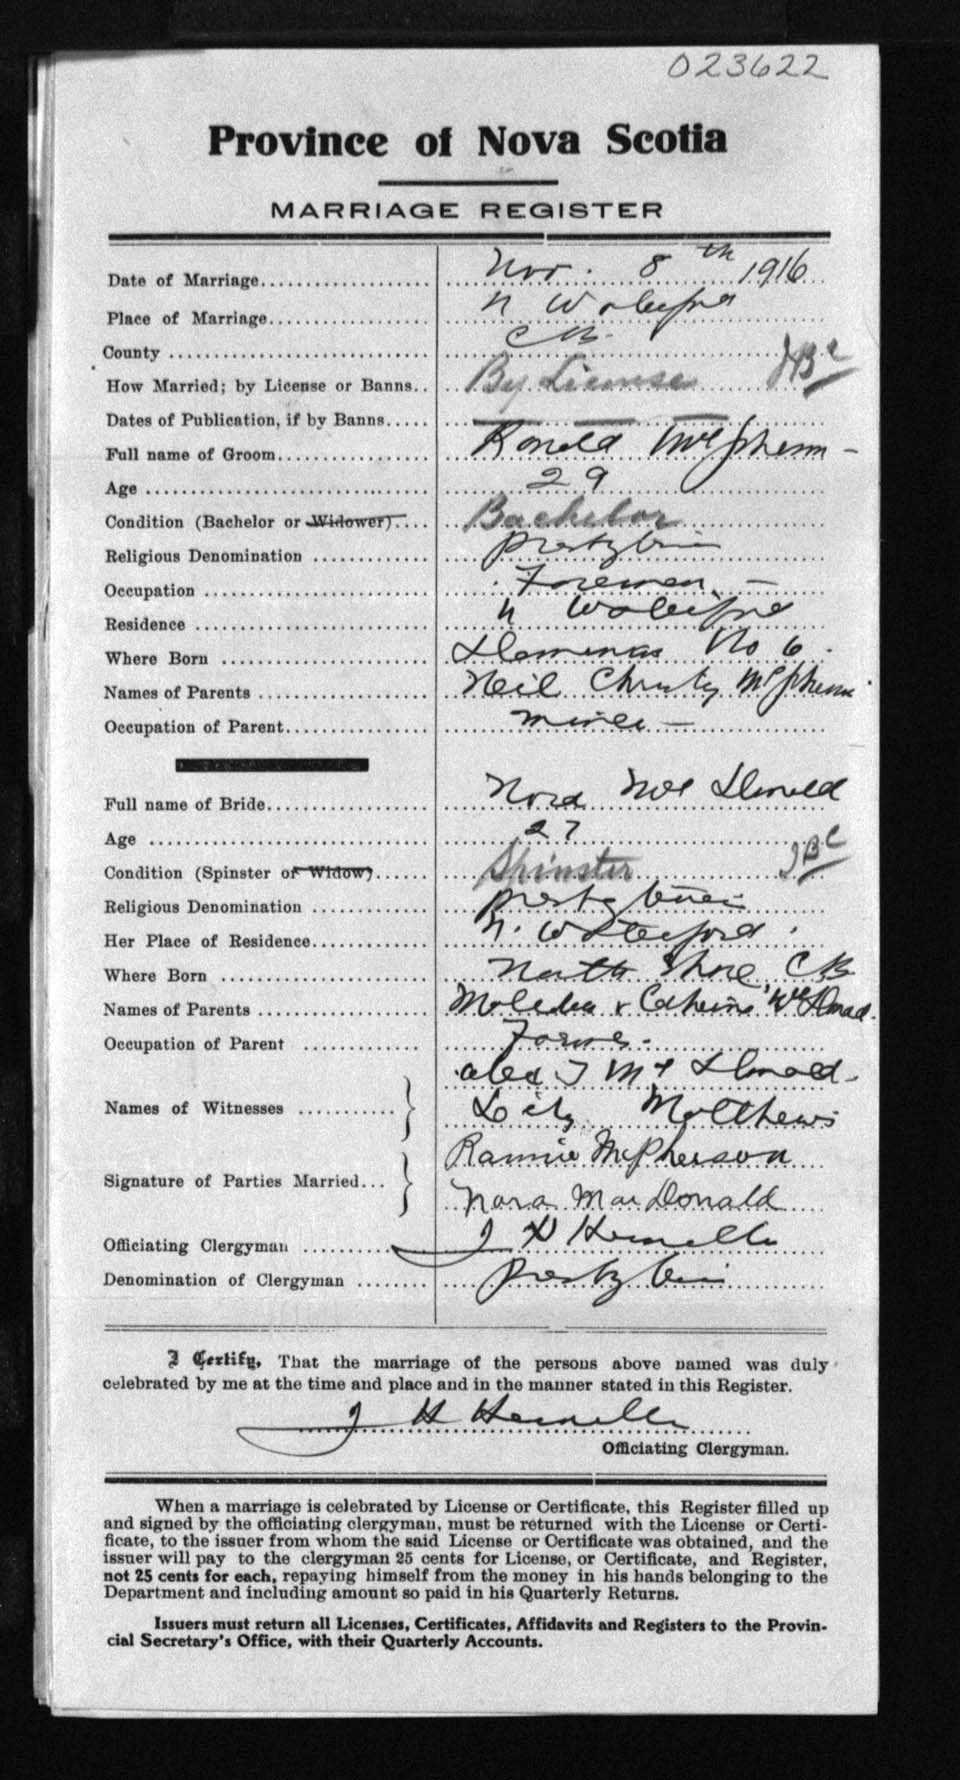 023622
Province of Nova Scotia
MARRIAGE REGISTER
Date of Marriage Nov. 8th 1916
Place of Marriage N Waterford
County C B.
How Married; by License or Banns By License JBC
Dates of Publication, if by Banns
Full name of Groom Ronald McPherson
Age 29
Condition (Bachelor or Widower) Bachelor
Religious Denomination
Occupation Foreman
Residence N Waterford
Where Born No 6
Names of Parents Neil Christy McPherson
Occupation of Parent miner
Full name of Bride Nora McDonald
Age 27
Condition (Spinster or Widow) Spinster JBC
Religious Denomination
Her Place of Residence N. Waterford
Where Born North Shore CB
Names of Parents & McDonald
Occupation of Parent Farmer
Alex J McDonald
Names of Witnesses
Matthews
Rannie McPherson
Signature of Parties Married
Nora MacDonald
Officiating Clergyman
Denomination of Clergyman
I Certify, That the marriage of the persons above named was duly
celebrated by me at the time and place and in the manner stated in this Register.
Officiating Clergyman.
When a marriage is celebrated by License or Certificate, this Register filled up
and signed by the officiating clergyman, must be returned with the License or Certi-
ficate, to the issuer from whom the said License or Certificate was obtained, and the
issuer will pay to the clergyman 25 cents for License, or Certificate, and Register,
not 25 cents for each, repaying himself from the money in his hands belonging to the
Department and including amount so paid in his Quarterly Returns.
Issuers must return all Licenses, Certificates, Affidavits and Registers to the Provin-
cial Secretary's Office, with their Quarterly Accounts.